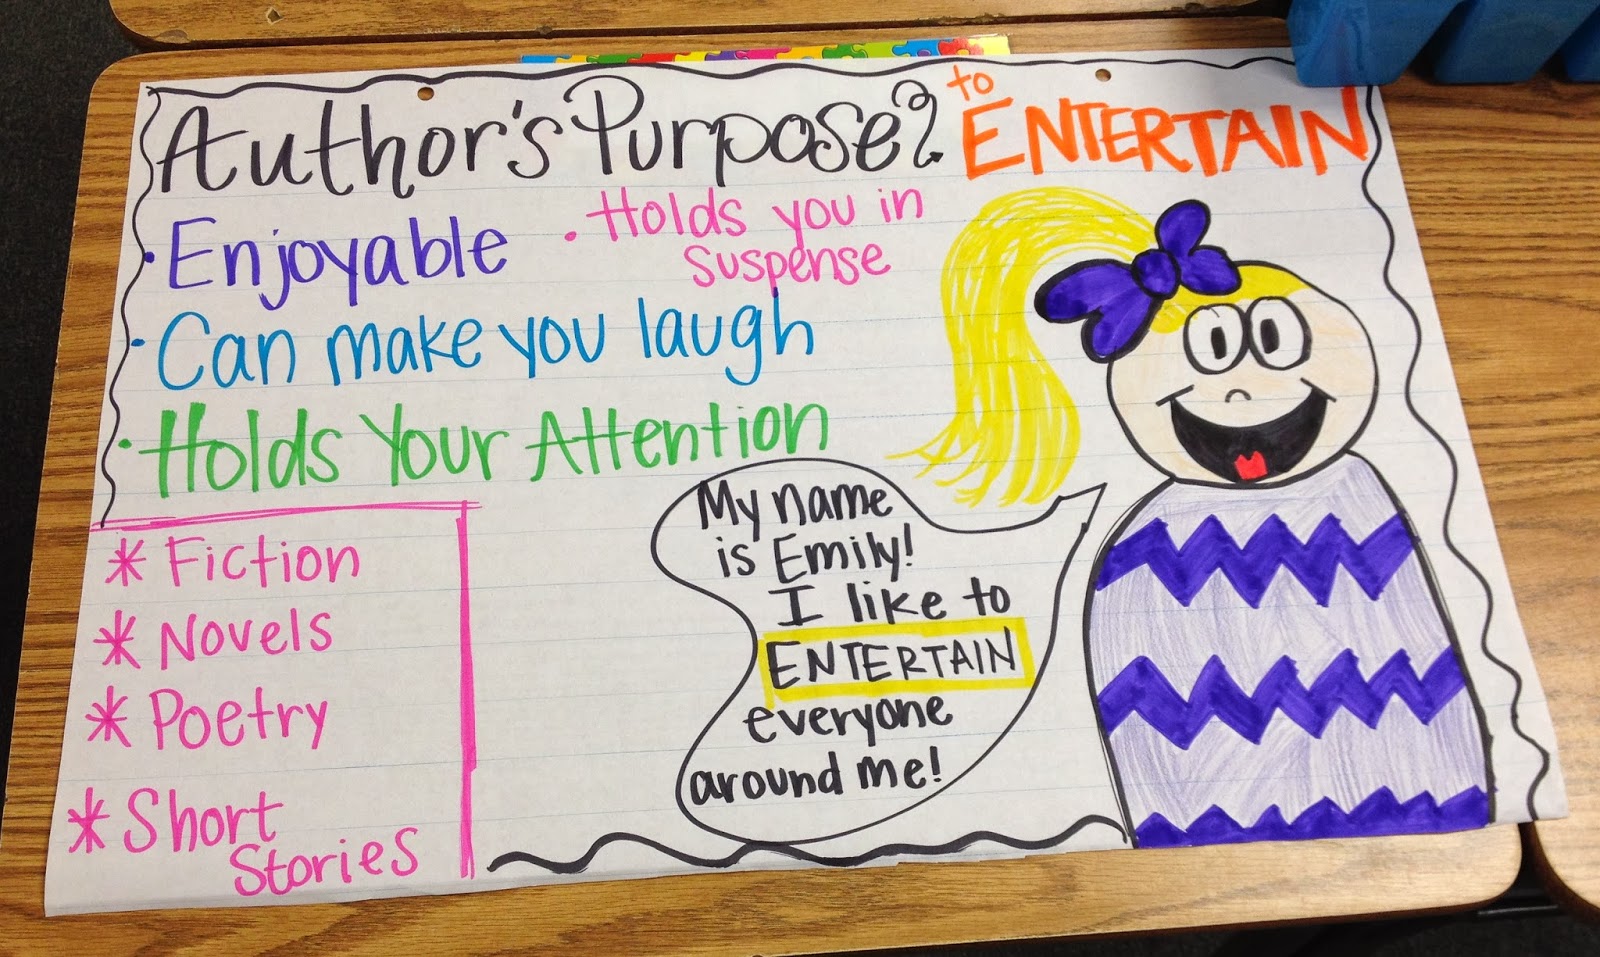 Author's Purpose? to ENTERTAIN
• Enjoyable
• Holds you in
suspense
• Can make you laugh
• Holds Your Attention
* Fiction
* Novels
* Poetry
* Short
Stories
My name
is Emily!
I like to
ENTERTAIN
everyone
around me!